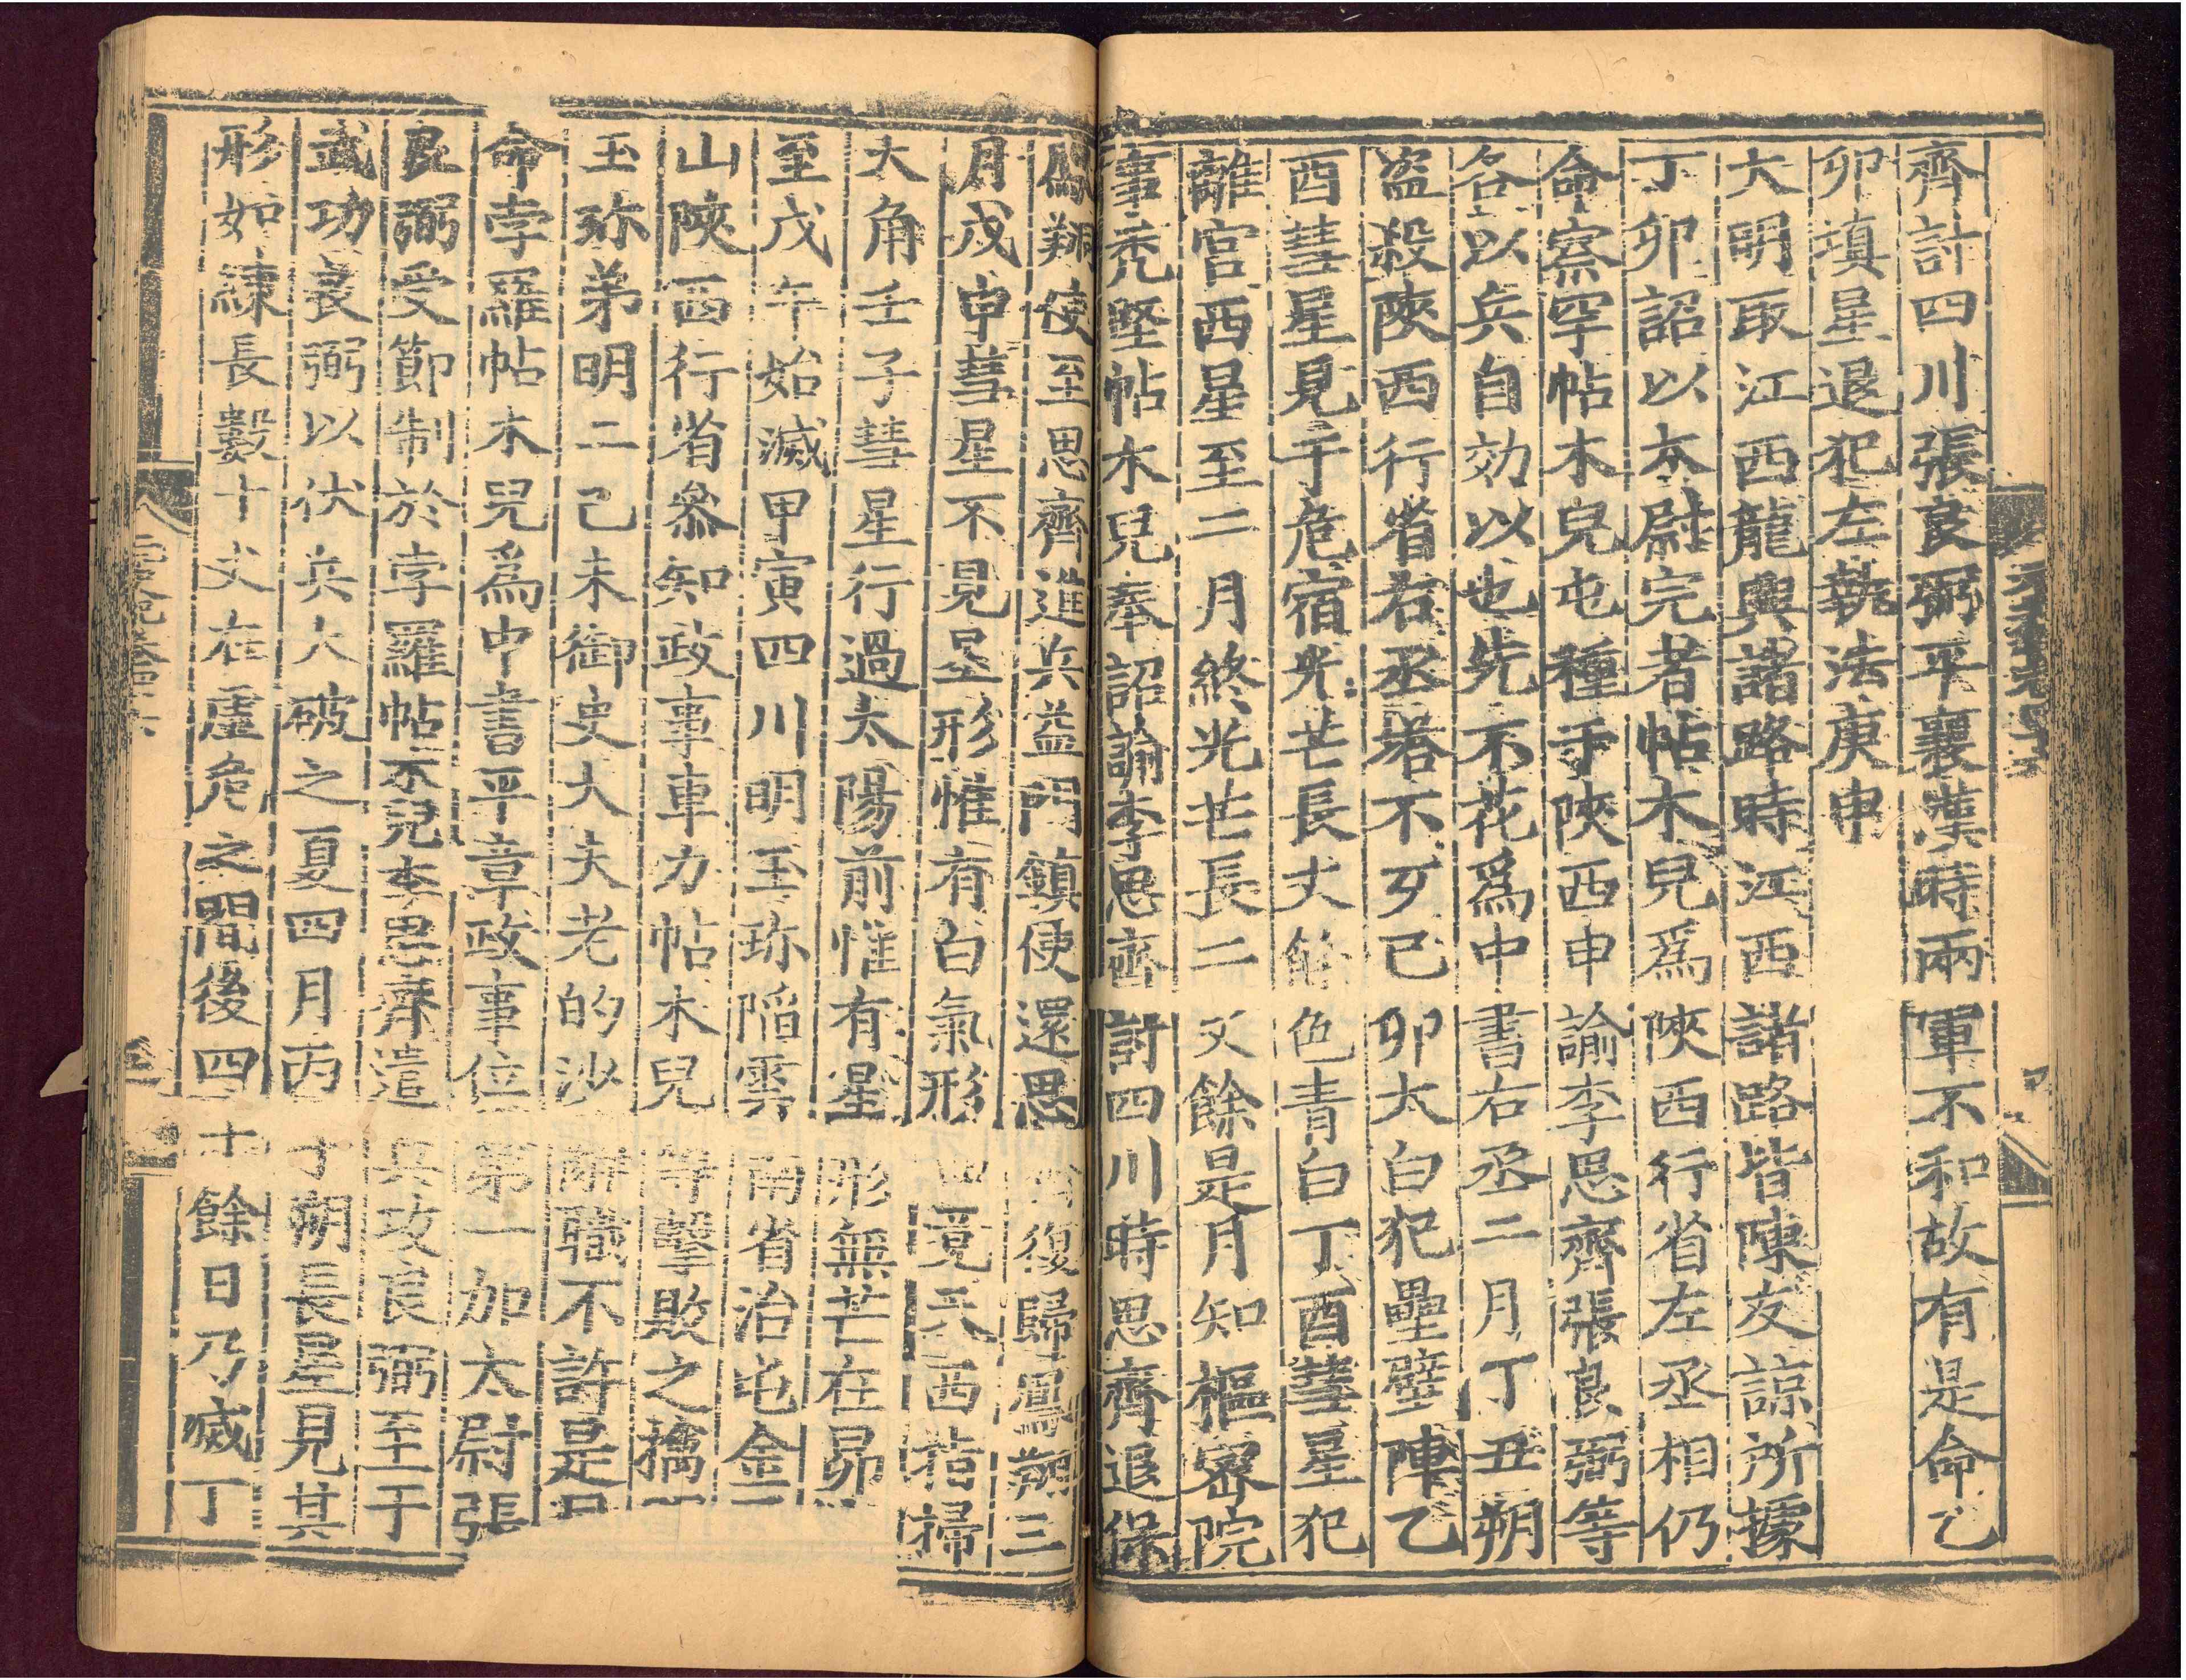 齊討四川張良弼平襄漢時兩軍不和故有是命乙
卯填星退犯左執法庚申
大明取江西龍興諸路時江西諸路皆陳友諒所據
丁卯詔以太尉完者帖木兒爲陝西行省左丞相仍
命察罕帖木兒屯種于陝西申諭李思齊張良弼等
各以兵自効以也先不花爲中書右丞二月丁丑朔
盗殺陝西行省右丞塔不歹己卯太白犯壘壁陣乙
酉彗星見于危宿光芒長丈餘色青白丁酉彗星犯
離宮西星至二月終光芒長二丈餘是月知樞密院
事禿堅帖木兒奉詔諭李思齊討四川時思齊退保
鳳翔使至思齊進兵益門鎮使還思齊復歸鳳翔三
月戊申彗星不見星形惟有白氣形曲竟天西指掃
大角壬子彗星行過太陽前惟有星形無芒在昴
至戊午始滅甲寅四川明玉珍陷雲南省治屯金
山陝西行省參知政事車力帖木兒等擊敗之擒
玉珍弟明二己未御史大夫老的沙辭職不許是
命孛羅帖木兒爲中書平章政事位第一加太尉張
良弼受節制於孛羅帖木兒李思齊遣兵攻良弼至于
武功良弼以伏兵大破之夏四月丙子朔長星見其
形如練長數十丈在虛危之間後四十餘日乃滅丁